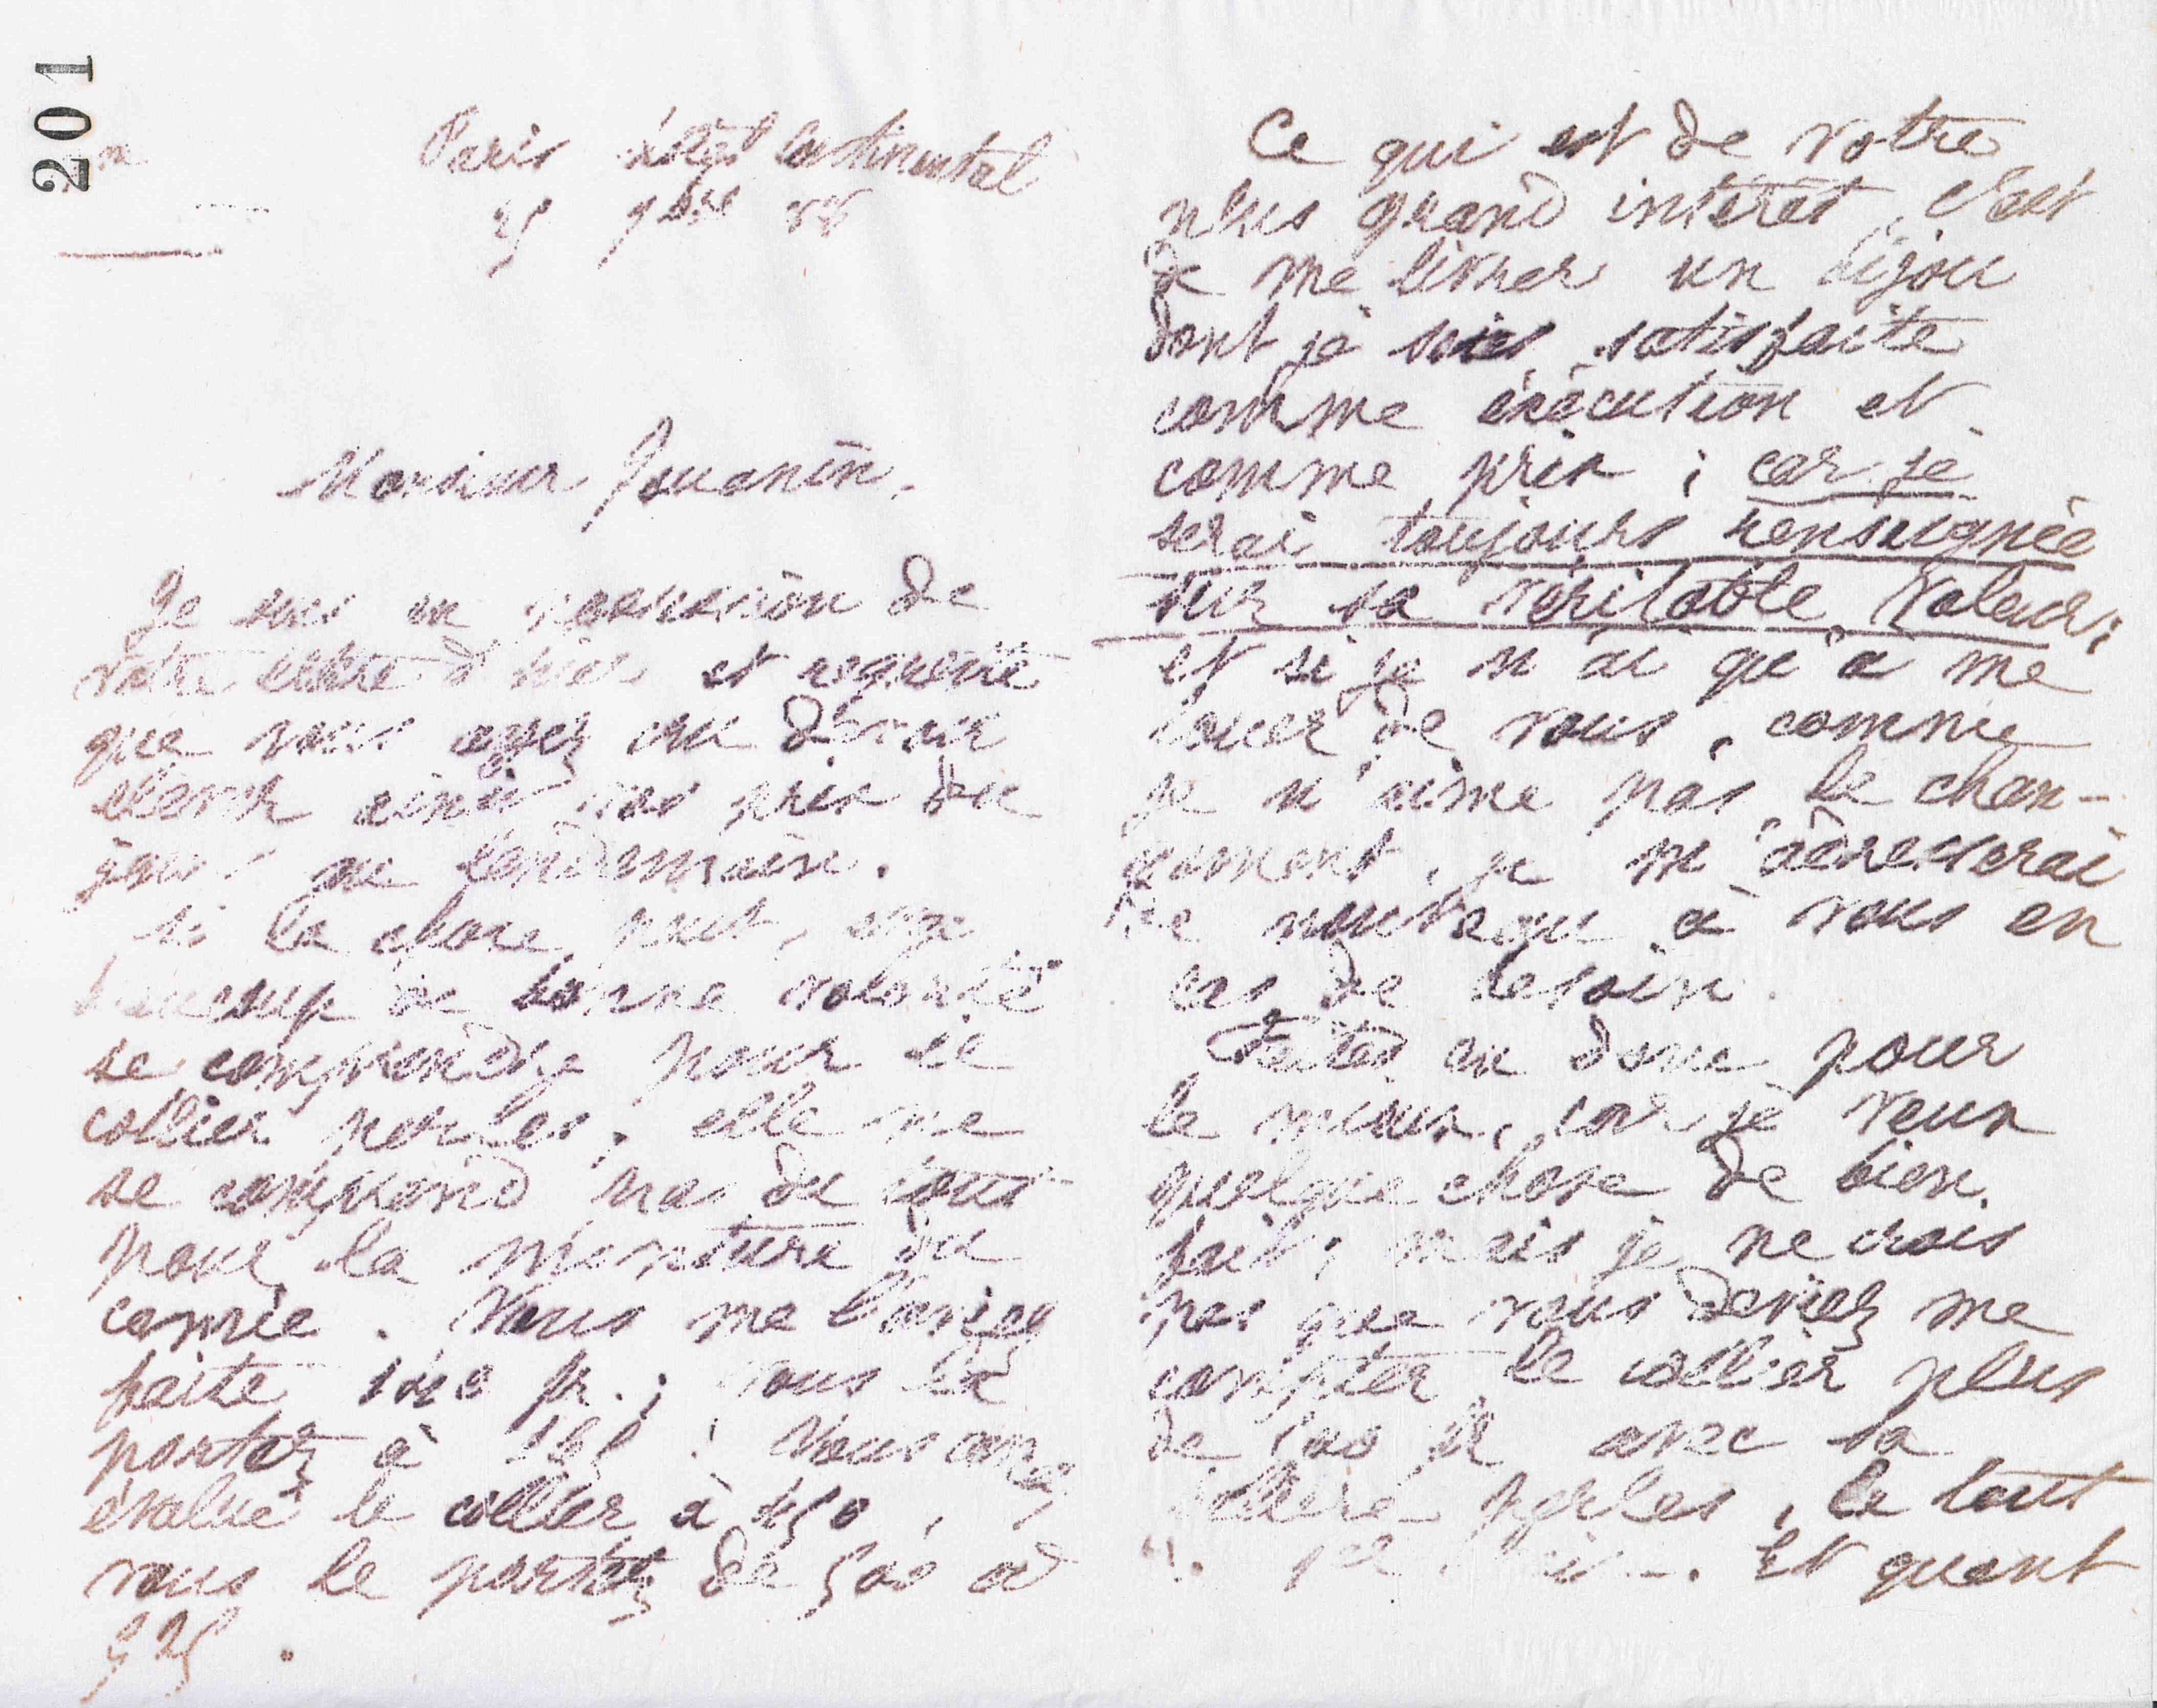 201
Paris Hôtel Continental
25 9bre 88
Monsieur Jouanin.
Je suis en possession de
votre lettre d'hier et regrette
que vous ayez cru devoir
élever ainsi vos prix du
jour au lendemain.
Si la chose peut, avec
beaucoup de bonne volonté
se comprendre pour le
collier perles, elle ne
se comprend pas du tout
pour la monture du
camée. Vous me l'aviez
faite fr.; vous la
portez à ! Vous avez
évalué le collier à 450,
vous le portez de 500 à
525.
Ce qui est de votre
plus grand intérêt, c'est
de me livrer un bijou
dont je sois satisfaite
comme exécution et
comme prix ; car je
serai toujours renseignée
sur sa véritable valeur;
et si je n'ai qu'à me
louer de vous, comme
je n'aime pas le chan-
gement, je m'adresserai
de nouveau à vous en
cas de besoin.
Faites en donc pour
le mieux, car je veux
quelque chose de bien
fait; mais je ne crois
pas que vous deviez me
compter le collier plus
de 500 fr avec sa
perles, le tout
Et quant